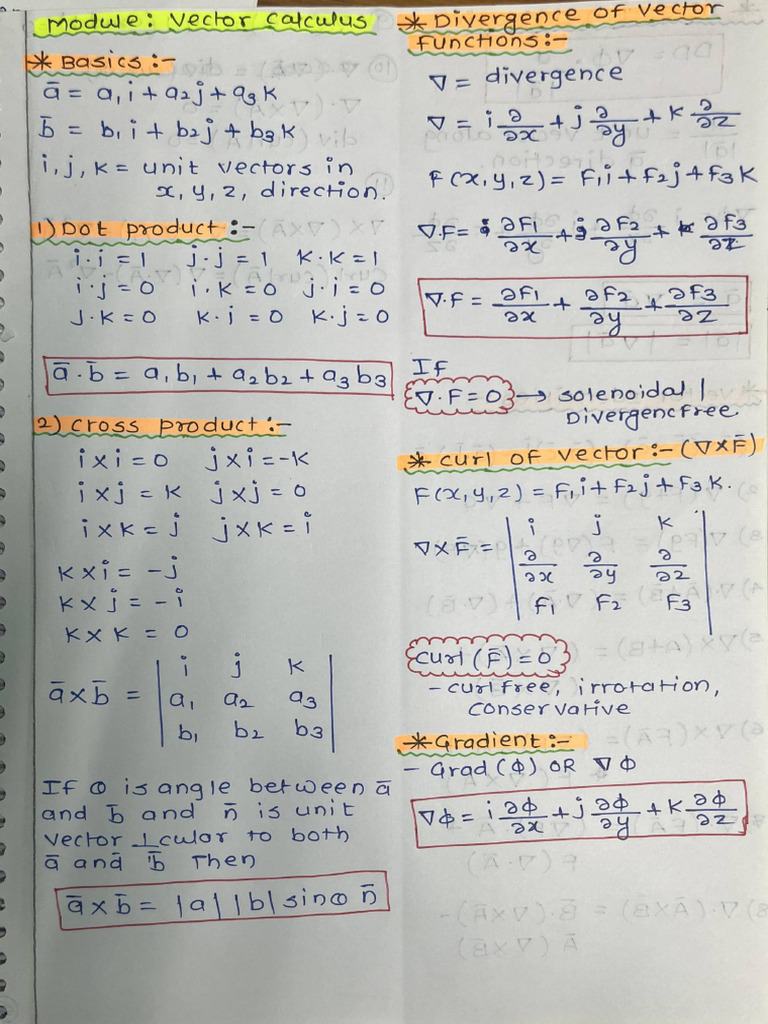 Module: Vector Calculus
* Basics :-
ā = a₁i + a₂j + a₃k
b̄ = b₁i + b₂j + b₃k
i, j, k = unit vectors in
x, y, z, direction.
1) Dot product :-
i·i = 1 j·j = 1 k·k = 1
i·j = 0 i·k = 0 j·i = 0
j·k = 0 k·i = 0 k·j = 0
ā·b̄ = a₁b₁ + a₂b₂ + a₃b₃
2) Cross product :-
i×i = 0 j×i = -k
i×j = k j×j = 0
i×k = j j×k = i
k×i = -j
k×j = -i
k×k = 0
ā×b̄ = | i j k |
| a₁ a₂ a₃ |
| b₁ b₂ b₃ |
If θ is angle between ā
and b̄ and n̄ is unit
vector ⊥cular to both
ā and b̄ Then
ā×b̄ = |a| |b| sinθ n̄
* Divergence of Vector
functions :-
∇ = divergence
∇ = i ∂/∂x + j ∂/∂y + k ∂/∂z
F(x,y,z) = F₁i + F₂j + F₃k
∇·F = i ∂F₁/∂x + j ∂F₂/∂y + k ∂F₃/∂z
∇·F = ∂F₁/∂x + ∂F₂/∂y + ∂F₃/∂z
If
∇·F = 0 → solenoidal |
Divergencfree.
* Curl of Vector :- (∇×F̄)
F(x,y,z) = F₁i + F₂j + F₃k.
∇×F̄ = | i j k |
| ∂/∂x ∂/∂y ∂/∂z |
| F₁ F₂ F₃ |
Curl (F̄) = 0
- curlfree, irrotation,
conservative
* Gradient :-
- Grad (ϕ) OR ∇ϕ
∇ϕ = i ∂ϕ/∂x + j ∂ϕ/∂y + k ∂ϕ/∂z